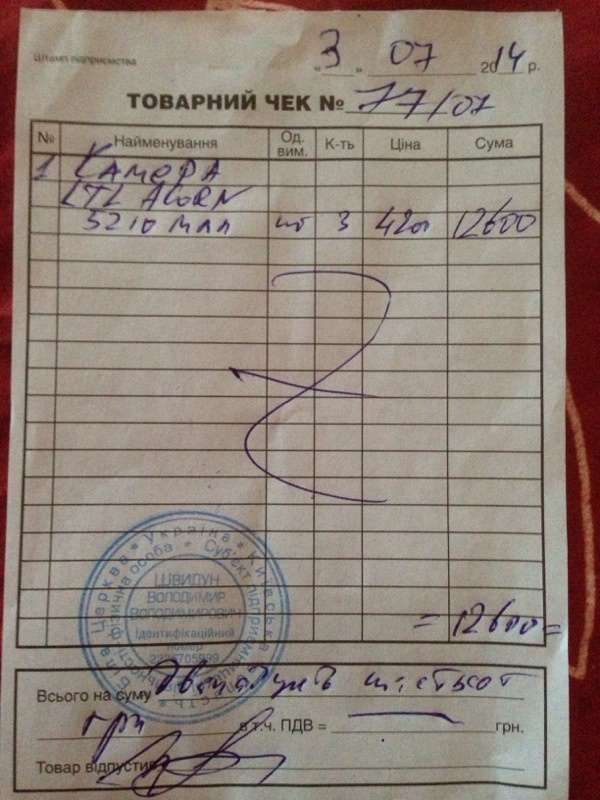 Штамп підприємства
„ 3 „ 07 2014 р.
ТОВАРНИЙ ЧЕК № 77/07
№ Найменування Од. вим. К-ть Ціна Сума
1 Камера
LTL ACORN
5210 МАА шт 3 4200 12600
Біла Церква * Україна * Київська
фізична особа * Суб'єкт підприємницької діяльності
ШВИДУН
ВОЛОДИМИР
ВОЛОДИМИРОВИЧ
Ідентифікаційний
номер
= 12600 =
Всього на суму Дванадцять шістьсот
грн в т.ч. ПДВ = — грн.
Товар відпустив